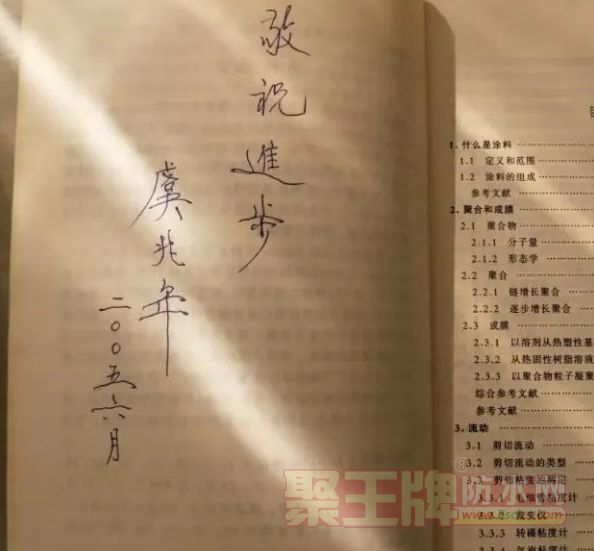 敬祝進步
虞兆年
二〇〇五六月
1. 什么是涂料
1.1 定义和范围
1.2 涂料的组成
参考文献
2. 聚合和成膜
2.1 聚合物
2.1.1 分子量
2.1.2 形态学
2.2 聚合
2.2.1 链增长聚合
2.2.2 逐步增长聚合
2.3 成膜
2.3.1 以溶剂从热塑性基
2.3.2 从热固性树脂溶液
2.3.3 以聚合物粒子凝聚
综合参考文献
参考文献
3. 流动
3.1 剪切流动
3.2 剪切流动的类型
3.3 剪切粘度的测定
3.3.1 毛细管粘度计
3.3.2 流变仪
3.3.3 转碟粘度计
3.3.4 气泡粘度计
聚王牌®防水网